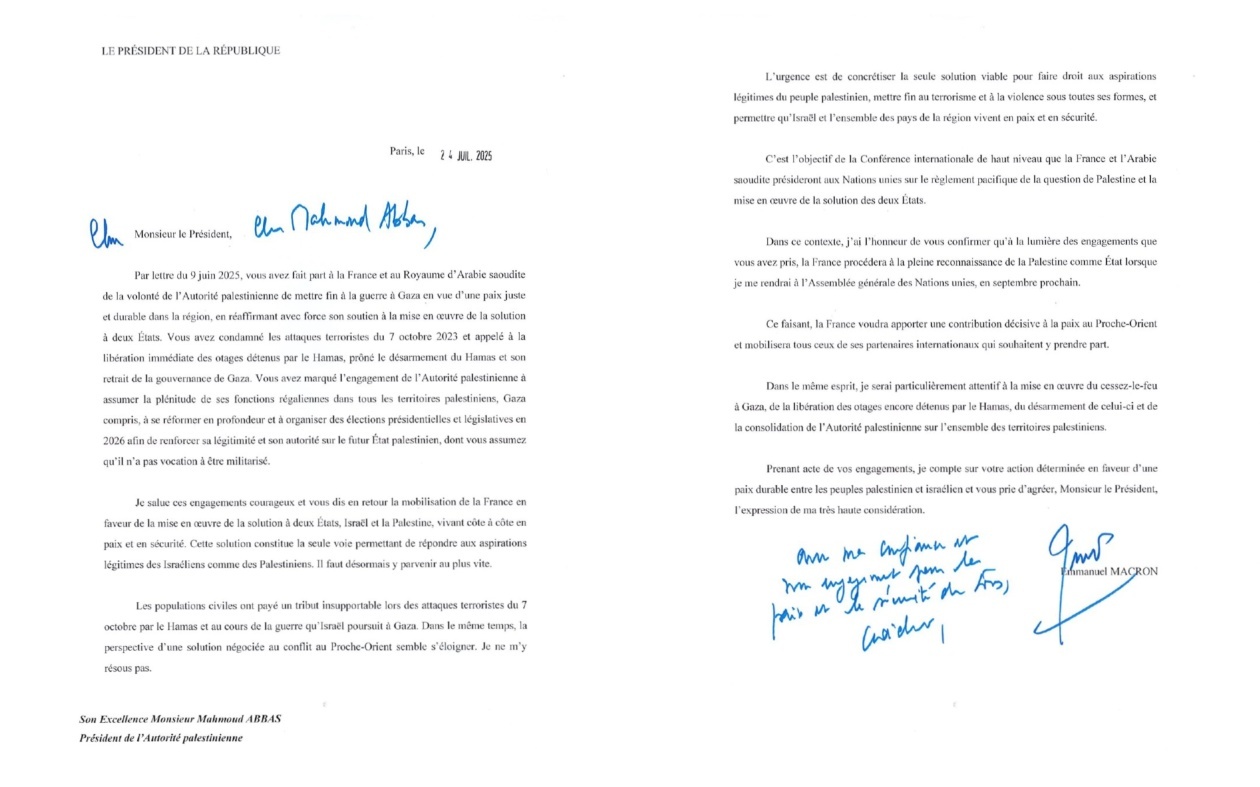 LE PRÉSIDENT DE LA RÉPUBLIQUE
Paris, le 24 JUIL. 2025
Cher Monsieur le Président, cher Mahmoud Abbas,
Par lettre du 9 juin 2025, vous avez fait part à la France et au Royaume d'Arabie saoudite
de la volonté de l'Autorité palestinienne de mettre fin à la guerre à Gaza en vue d'une paix juste
et durable dans la région, en réaffirmant avec force son soutien à la mise en œuvre de la solution
à deux États. Vous avez condamné les attaques terroristes du 7 octobre 2023 et appelé à la
libération immédiate des otages détenus par le Hamas, prôné le désarmement du Hamas et son
retrait de la gouvernance de Gaza. Vous avez marqué l'engagement de l'Autorité palestinienne à
assumer la plénitude de ses fonctions régaliennes dans tous les territoires palestiniens, Gaza
compris, à se réformer en profondeur et à organiser des élections présidentielles et législatives en
2026 afin de renforcer sa légitimité et son autorité sur le futur État palestinien, dont vous assumez
qu'il n'a pas vocation à être militarisé.
Je salue ces engagements courageux et vous dis en retour la mobilisation de la France en
faveur de la mise en œuvre de la solution à deux États, Israël et la Palestine, vivant côte à côte en
paix et en sécurité. Cette solution constitue la seule voie permettant de répondre aux aspirations
légitimes des Israéliens comme des Palestiniens. Il faut désormais y parvenir au plus vite.
Les populations civiles ont payé un tribut insupportable lors des attaques terroristes du 7
octobre par le Hamas et au cours de la guerre qu'Israël poursuit à Gaza. Dans le même temps, la
perspective d'une solution négociée au conflit au Proche-Orient semble s'éloigner. Je ne m'y
résous pas.
Son Excellence Monsieur Mahmoud ABBAS
Président de l'Autorité palestinienne
L'urgence est de concrétiser la seule solution viable pour faire droit aux aspirations
légitimes du peuple palestinien, mettre fin au terrorisme et à la violence sous toutes ses formes, et
permettre qu'Israël et l'ensemble des pays de la région vivent en paix et en sécurité.
C'est l'objectif de la Conférence internationale de haut niveau que la France et l'Arabie
saoudite présideront aux Nations unies sur le règlement pacifique de la question de Palestine et la
mise en œuvre de la solution des deux États.
Dans ce contexte, j'ai l'honneur de vous confirmer qu'à la lumière des engagements que
vous avez pris, la France procédera à la pleine reconnaissance de la Palestine comme État lorsque
je me rendrai à l'Assemblée générale des Nations unies, en septembre prochain.
Ce faisant, la France voudra apporter une contribution décisive à la paix au Proche-Orient
et mobilisera tous ceux de ses partenaires internationaux qui souhaitent y prendre part.
Dans le même esprit, je serai particulièrement attentif à la mise en œuvre du cessez-le-feu
à Gaza, de la libération des otages encore détenus par le Hamas, du désarmement de celui-ci et de
la consolidation de l'Autorité palestinienne sur l'ensemble des territoires palestiniens.
Prenant acte de vos engagements, je compte sur votre action déterminée en faveur d'une
paix durable entre les peuples palestinien et israélien et vous prie d'agréer, Monsieur le Président,
l'expression de ma très haute considération.
avec ma confiance et
mon engagement pour la
paix et la sécurité de tous,
Emmanuel MACRON